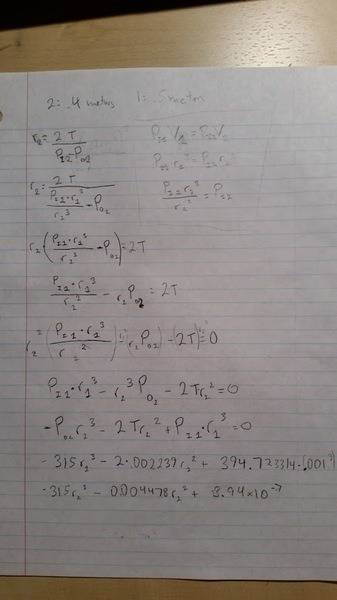 2: .4 meters 1: .5 meters
r₂ = 2T / (P_{i2} P_{o2})
P_{i1} V_1 = P_{i2} V_2
r₂ = 2T / (P_{i1} · r_1^3 / r_2^3 - P_{o2})
P_{i1} r_1^3 = P_{i2} r_2^3
P_{i1} r_1^3 / r_2^3 = P_{i2}
r_2 · (P_{i1} · r_1^3 / r_2^3 - P_{o2}) = 2T
P_{i1} · r_1^3 / r_2^2 - r_2 P_{o2} = 2T
r_2^2 (P_{i1} · r_1^3 / r_2^2) - (r_2 P_{o2}) - (2T) = 0
P_{i1} · r_1^3 - r_2^3 P_{o2} - 2T r_2^2 = 0
-P_{o2} r_2^3 - 2T r_2^2 + P_{i1} · r_1^3 = 0
-315 r_2^3 - 2 · .002239 r_2^2 + 394.723314 · (.001^3)
-315 r_2^3 - 0.004478 r_2^2 + 3.94 × 10^{-7}